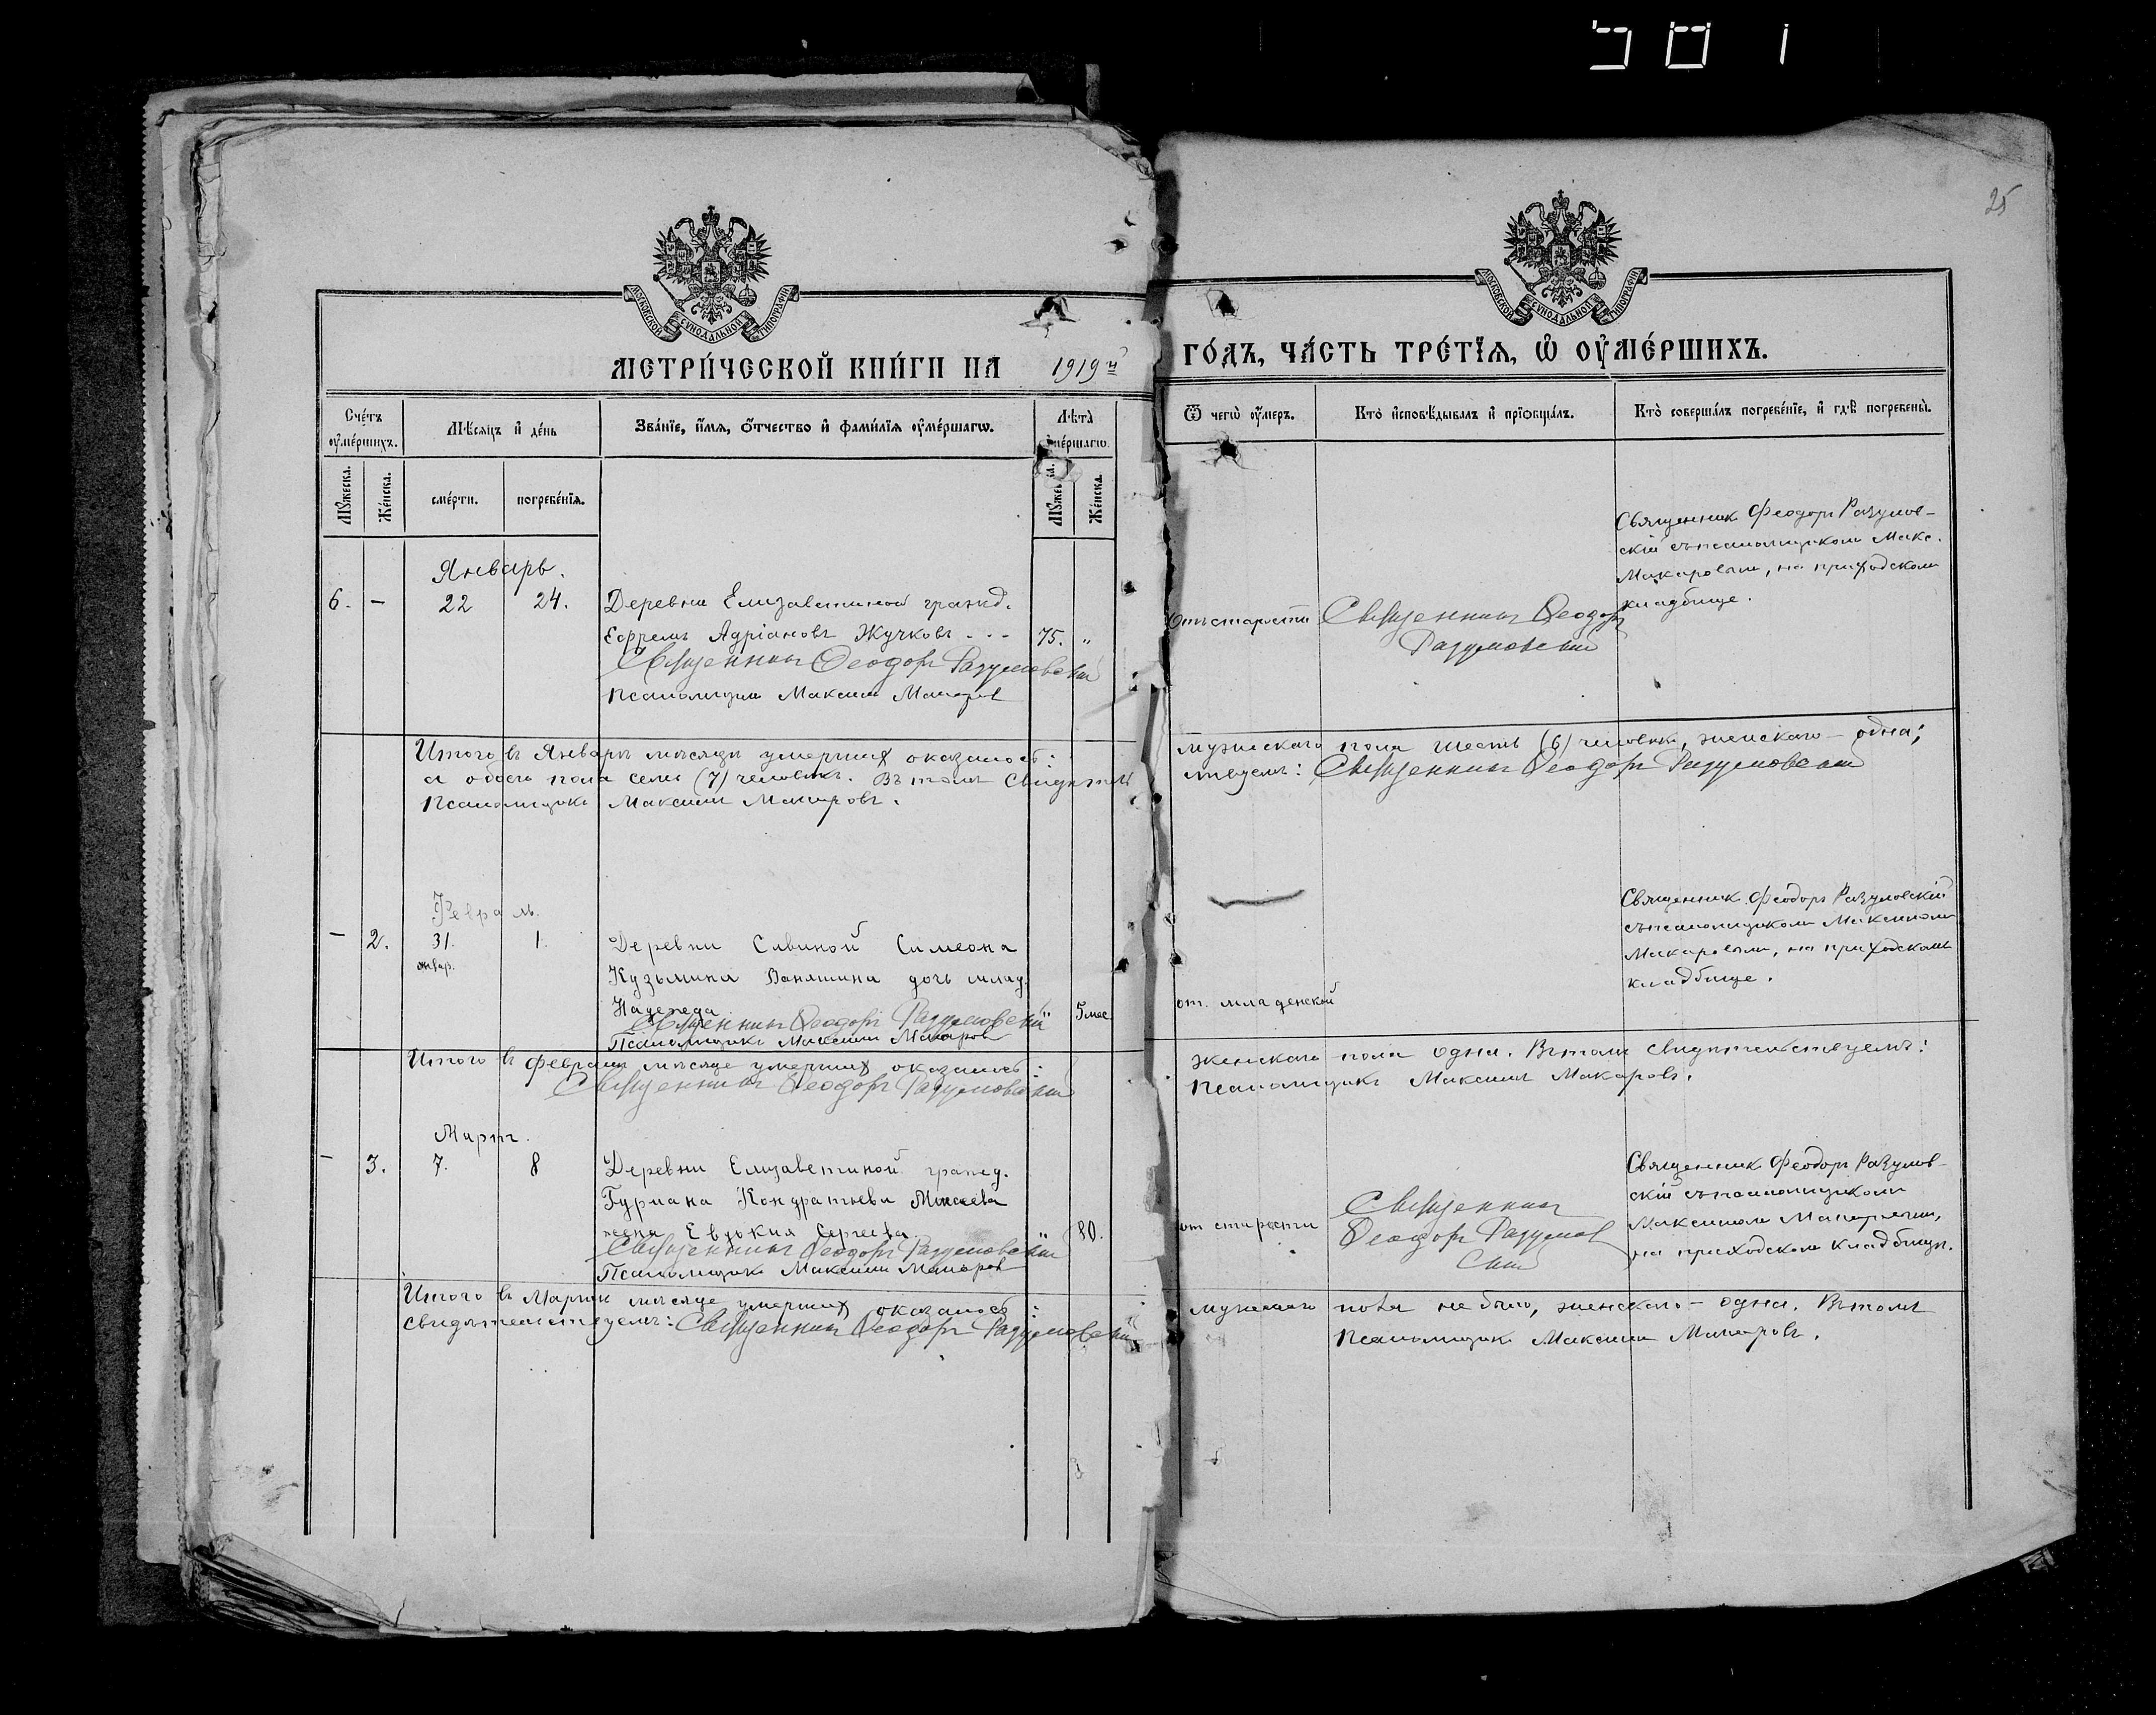 25
МОСКОВСКОЙ СѴНОДАЛЬНОЙ ТИПОГРАФІИ
МОСКОВСКОЙ СѴНОДАЛЬНОЙ ТИПОГРАФІИ
МЕТРИ́ЧЕСКОЙ КНИ́ГИ НА 1919й ГО́ДЪ, ЧА́СТЬ ТРЕ́ТЇѦ, Ѡ҆ ОУ҆МЕ́РШИХЪ.
Сче́тъ оумершихъ.
Мѣсяцъ и де́нь
Зва́нїе, и҆́мя, ѻ҆́тчество и҆ фами́лїя оуме́ршагѡ.
Лѣта̀ оумершагѡ.
Ѿ чегѡ̀ оу҆́меръ.
Кто̀ и҆сповѣ́дывалъ и҆ прїѡбща́лъ.
Кто̀ соверша́лъ погребе́нїе, и҆ гдѣ̀ погребены̀.
Мꙋжеска.
Же́нска.
сме́рти.
погребе́нїя.
Мꙋжеска.
Же́нска.
Январь.
6. - 22 24. Деревни Елизаветиной гражд.
Ефремъ Адріановъ Жучковъ - - - 75. "
Священникъ Ѳеодоръ Разумовскій
Псаломщикъ Максимъ Макаровъ
Отъ старости
Священникъ Ѳеодоръ
Разумовскій
Священник Феодоръ Разумов-
скій съ псаломщиком Макс.
Макаровым, на приходском
кладбище.
Итого въ Январѣ мѣсяцѣ умерших оказалось: мужескаго пола шесть (6) человѣкъ, женскаго - одна;
а обоего пола семь (7) человѣкъ. Въ томъ свидѣтельствуемъ: Священникъ Ѳеодоръ Разумовскій
Псаломщикъ Максимъ Макаровъ.
Февраль.
- 2. 31. 1. Деревни Савиной Симеона
январ.
Кузьмина Ванюшина дочь млад.
Надежда " 5 мес
Священникъ Ѳеодоръ Разумовскій
Псаломщикъ Максимъ Макаровъ
от. младенской
Священник Феодоръ Разумовскій
съ псаломщиком Максимом
Макаровым, на приходскомъ
кладбище.
Итого въ Февралѣ мѣсяце умерших оказалось: женскаго пола одна. Въ томъ свидѣтельствуемъ:
Священникъ Ѳеодоръ Разумовскій Псаломщикъ Максимъ Макаровъ.
Мартъ.
- 3. 7. 8 Деревни Елизаветиной гражд.
Гуриана Кондратьева Мисеева
жена Евдокия Сергеева " 80.
Священникъ Ѳеодоръ Разумовскій
Псаломщикъ Максимъ Макаровъ
от старости
Священникъ
Ѳеодоръ Разумов
скій
Священник Феодоръ Разумов-
скій съ псаломщиком
Максимом Макаровым,
на приходском кладбищѣ.
Итого въ Мартѣ мѣсяце умерших оказалось: мужескаго пола не было, женскаго - одна. Въ томъ
свидѣтельствуемъ: Священникъ Ѳеодоръ Разумовскій Псаломщикъ Максимъ Макаровъ.